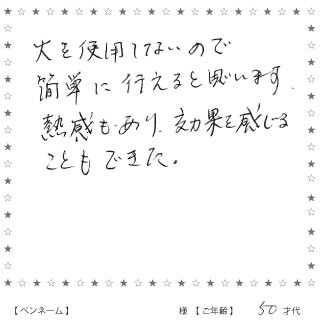 火を使用してないので
簡単に行えると思います.
熱感もあり、効果を感じる
こともできた。
【ペンネーム】 様 【ご年齢】 50 才代